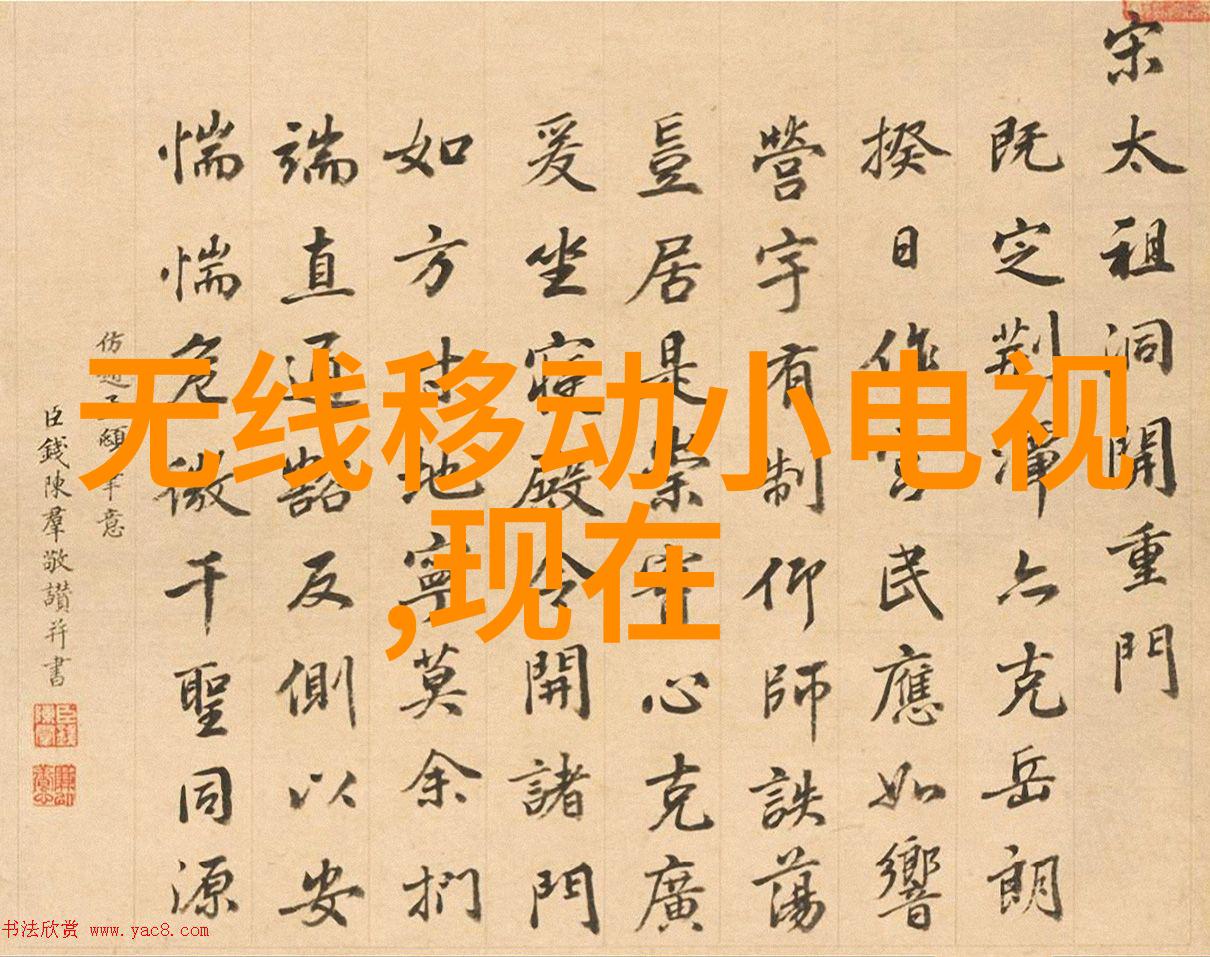 宋太祖洞開重門
既定荆渾六克岳朗
揆日作宫民應如響
營宇有制仰師訣蕩
豈居是崇宅心克廣
爰坐寢殿令開諸門
如方寸地寧莫余捫
端直通豁反側以安
惴惴危微千聖同源
仿趙子頫筆意
臣錢陳羣敬讃并書
无线移动小电视
,现在
书法欣赏 www.yac8.com